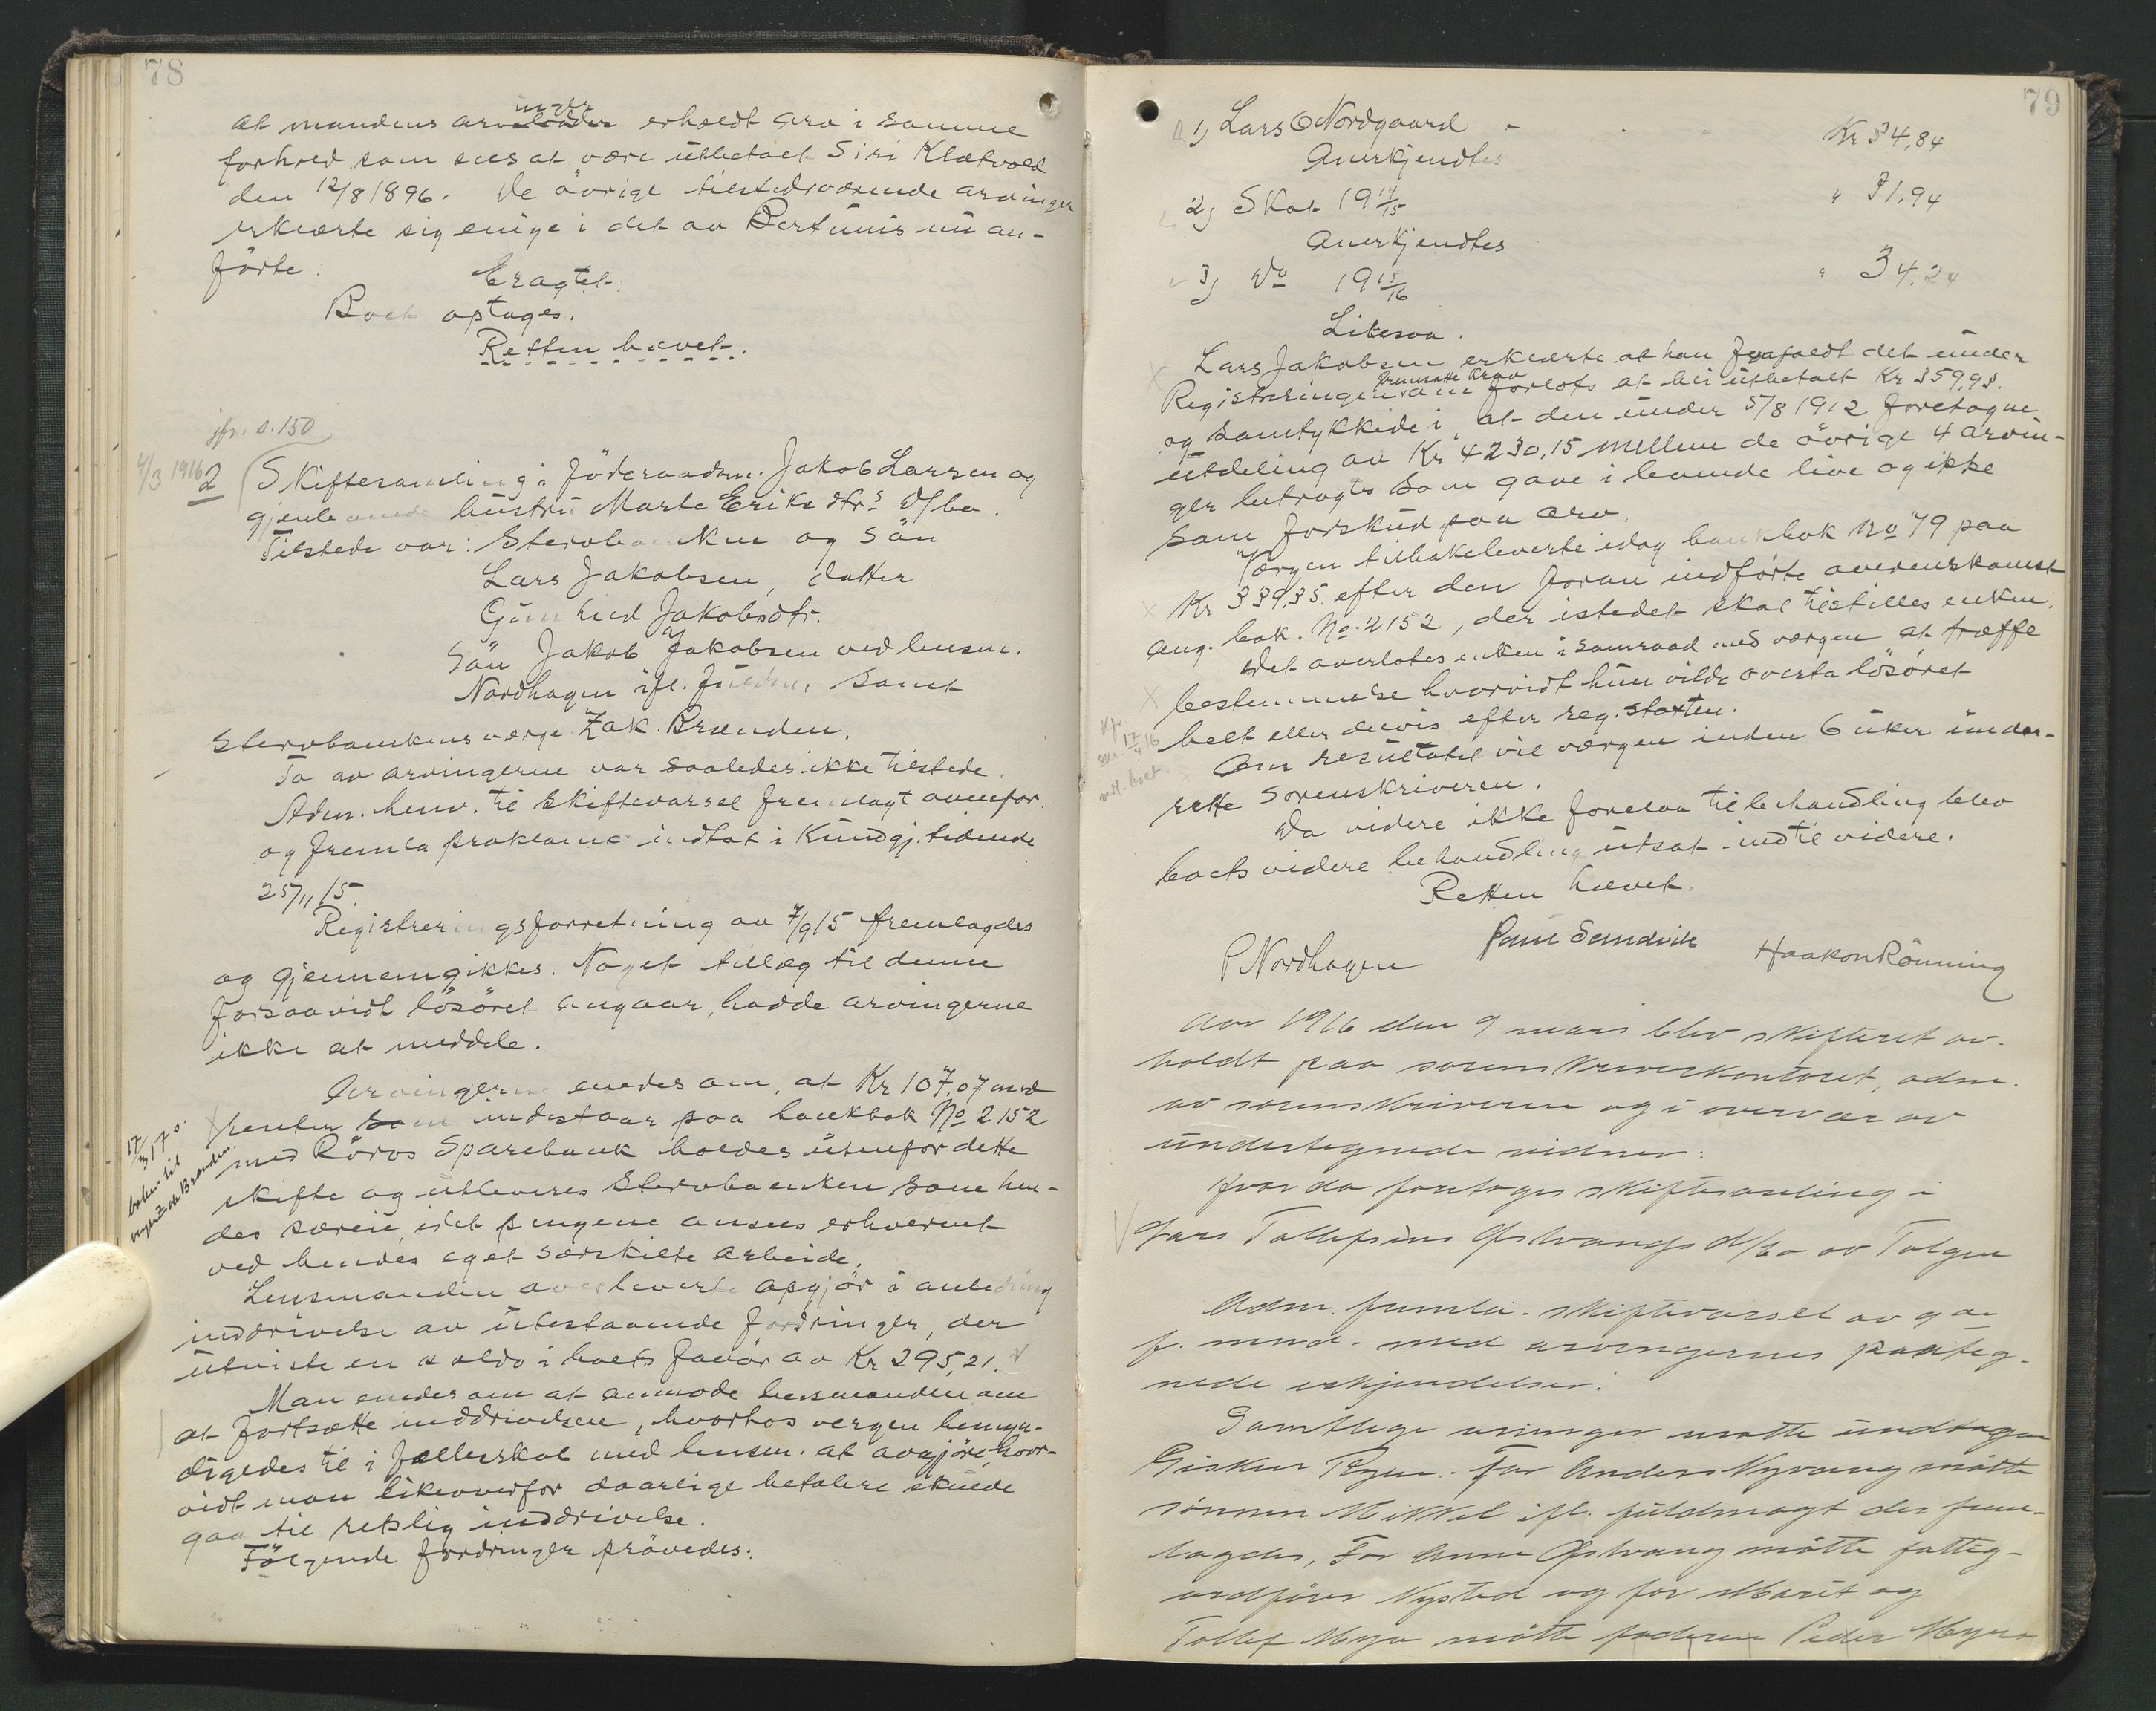 78
at mandens arvinger erholdt arv i samme
forhold som sees at være utbetalt Siri Kletvold
den 12/8 1896. De övrige tilstedeværende arvinger
erklærte sig enige i det av Bertinius nu an-
förte.
Eragtet.
Boet optages.
Retten hævet.
jfr. s. 150
4/3 1916 2 Skiftesamling i föderaadsm. Jakob Larsen og
gjenlevende hustru Marte Eriksdtrs D/bo.
Tilstede var: Stervboenken og Sön
Lars Jakobsen, datter
Gunhild Jakobsdtr.
Sön Jakob Jakobsen ved lensm.
Nordhagen ifl. fuldm. samt
Stervboenkens værge Zak. Brænden.
To av arvingerne var saaledes ikke tilstede.
Adm. henv. til skiftevarsel fremlagt ovenfor.
og fremla proklama indtat i Kundgj. tidende
25/11 15.
Registreringsforretning av 7/9 15 fremlagdes
og gjennemgikkes. Noget tillæg til denne
forsaavidt lösöret angaar, hadde arvingerne
ikke at meddele.
Arvingerne enedes om, at Kr 107,07 med
renter som indestaar paa bankbok No 2152
med Röros Sparebank holdes utenfor dette
skifte og utleveres Stervboenken som hen-
des særeie, idet pengene ansees erhvervet
ved hendes eget særskilte arbeide.
17/3 17 s.
boken til
Brænden.
Lensmanden overleverte opgjör i anledning
inddrivelse av utestaaende fordringer, der
utviste en saldo i boets favör av Kr 295,21.
Man enedes om at anmode lensmanden om
at fortsætte inddrivelsen, hvorhos vergen bemyn-
digedes til i fællesskab med lensm. at avgjöre, hvor-
vidt man likeoverfor daarlige betalere skulde
gaa til retslig inddrivelse.
Fölgende fordringer prövedes:
79
1) Lars O Nordgaard - Kr 34,84
Anerkjendtes
2) Skat 19 14/15 " 31.94
Anerkjendtes
3) Do 19 15/16 " 34.24
Likesaa.
Lars Jakobsen erklærte at han frafaldt det under
Registreringen fremsatte krav om forlots at bli utbetalt Kr 359,93.
og samtykkede i, at den under 5/8 1912 foretagne
utdeling av Kr 4230,15 mellem de övrige 4 arvin-
ger betragtes som gave i levende live og ikke
som forskud paa arv.
Værgen tilbakeleverte idag bankbok No 79 paa
Kr 339,35 efter den foran indförte overenskomst
ang. bok. No. 2152, der istedet skal tilstilles enken.
Det overlates enken i samraad med værgen at træffe
bestemmelse hvorvidt hun vilde overta lösöret
helt eller delvis efter reg. staxten.
17/4 16
Om resultatet vil værgen inden 6 uker under-
rette Sorenskriveren.
Da videre ikke forelaa til behandling blev
boets videre behandling utsat indtil videre.
Retten hævet.
P Nordhagen Paul Sandvik Haakon Rönning
Aar 1916 den 9 mars blev skifteret av-
holdt paa sorenskriverkontoret, adm.
av sorenskriveren og i overvær av
undertegnede vidner:
Hvor da foretoges skiftesamling i
Lars Tollefsens Östvangs d/bo av Tolgen
Adm. fremla. skiftevarsel av 9de
f. mnd. med arvingernes paateg-
nede erkjendelser.
Samtlige arvinger mötte undtagen
Gisken Rygen. For Anders Nyvang mötte
sönnen Mikkel ifl. fuldmagt der frem-
lagdes, For Anne Östvang mötte fattig-
ordförer Nysted og for Marit og
Tollef Myro mötte faderen Peder Myro